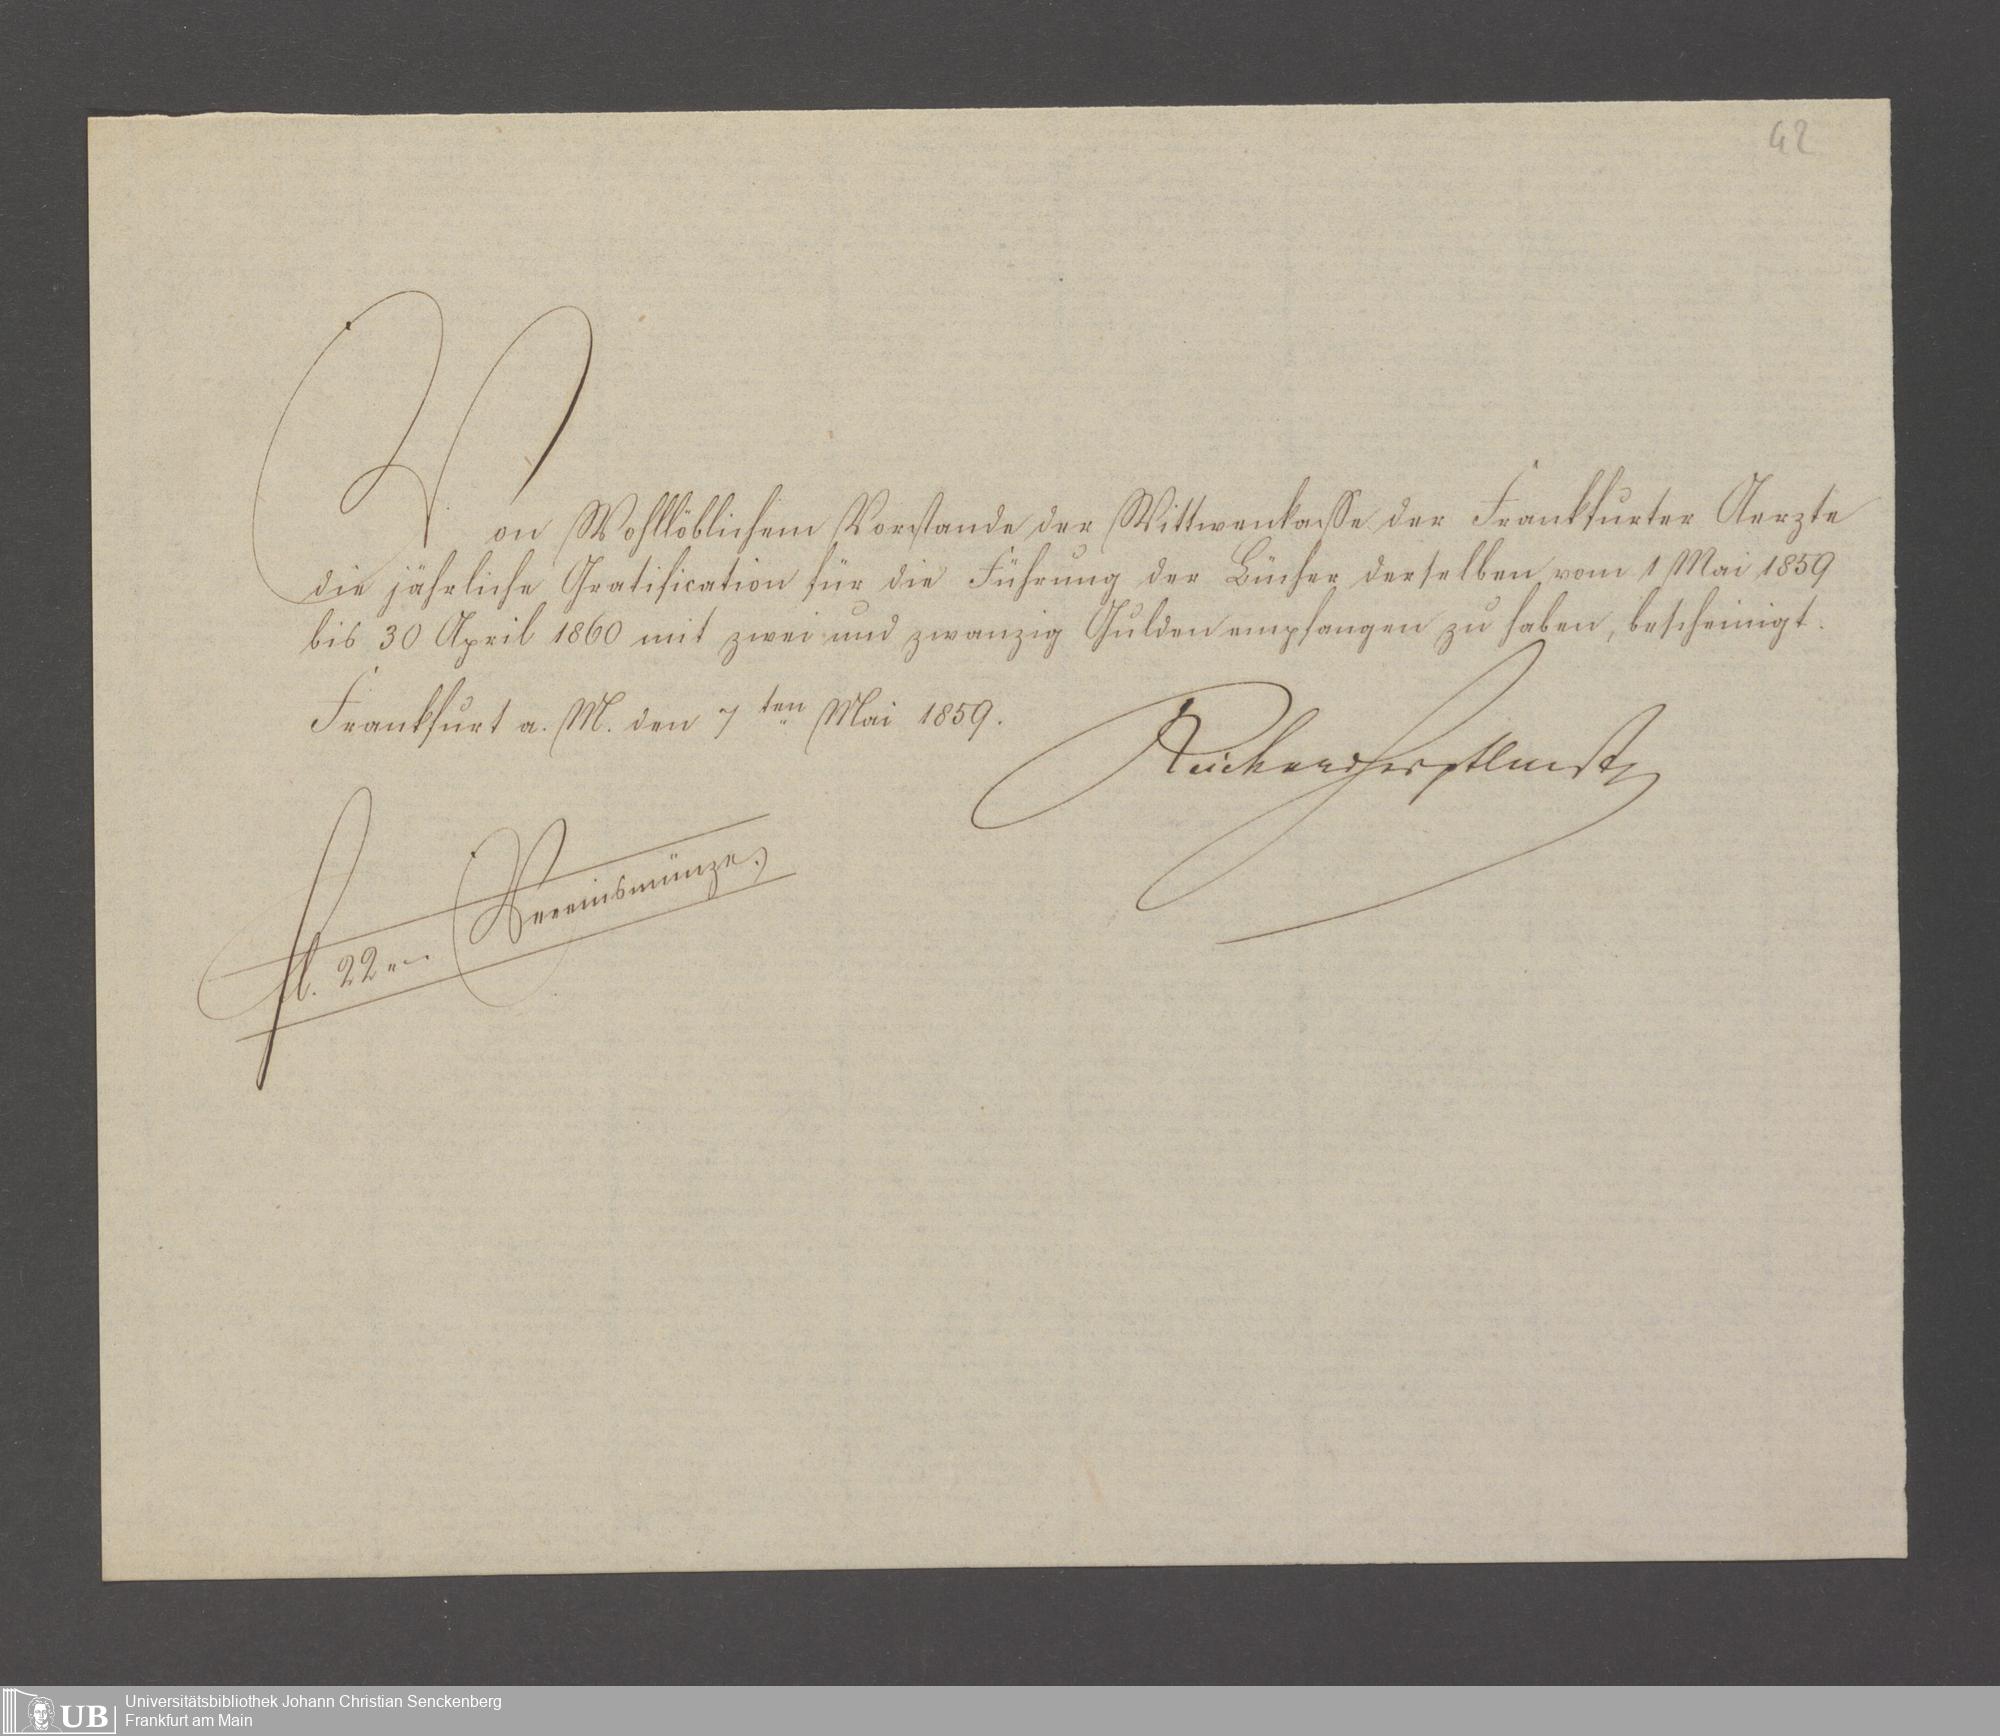 42
Von Wohllöblichem Vorstande der Wittwenkasse der Frankfurter Aerzte
die jährliche Gratification für die Führung der Bücher derselben vom 1 Mai 1859
bis 30 April 1860 mit zwei und zwanzig Gulden empfangen zu haben, bescheinigt.
Frankfurt a. M. den 7ten Mai 1859.
fl. 22 „ – Vereinsmünze.
UB
Universitätsbibliothek Johann Christian Senckenberg
Frankfurt am Main